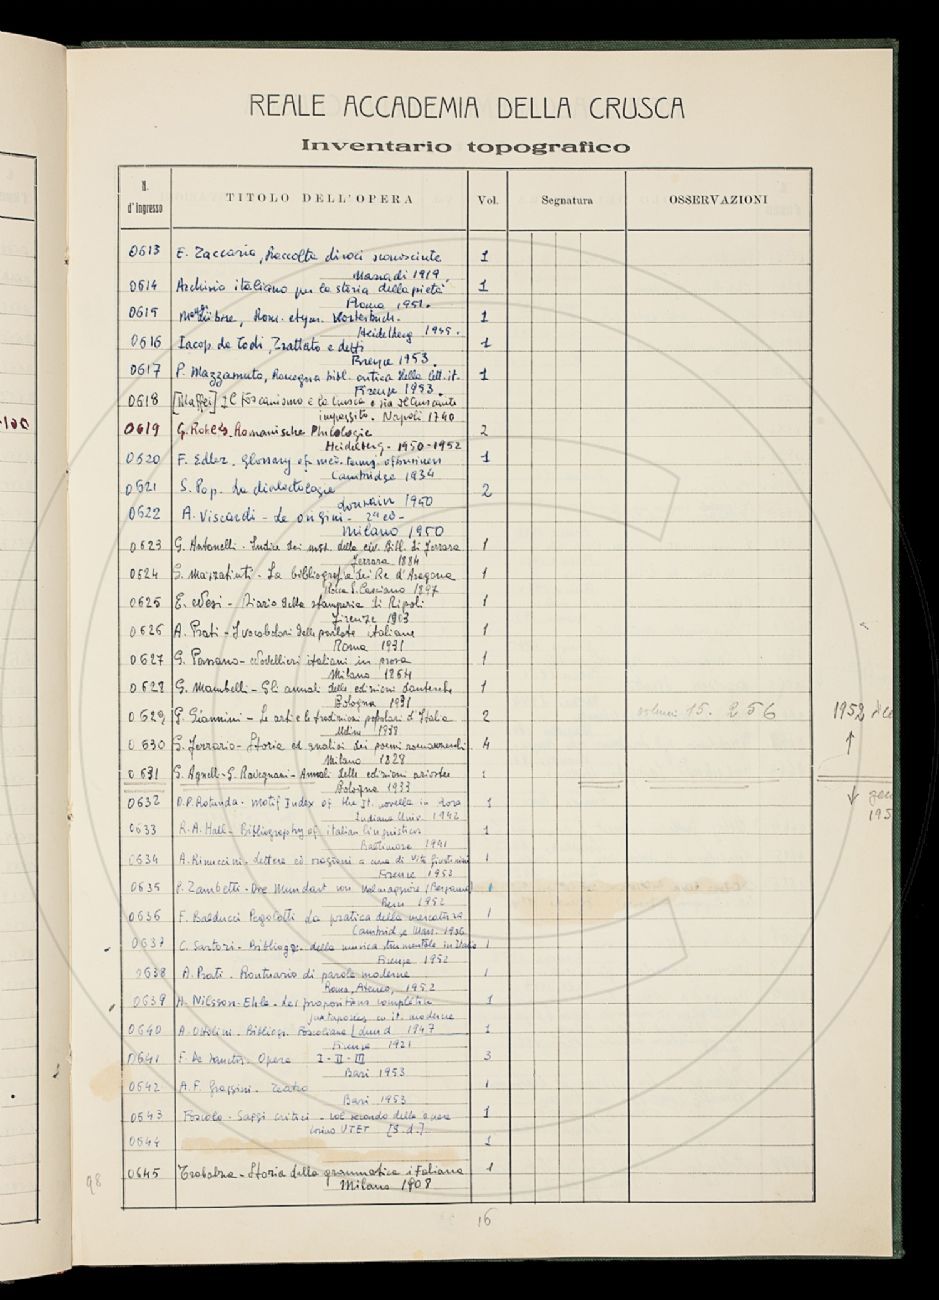 REALE ACCADEMIA DELLA CRUSCA
Inventario topografico
N. d'ingresso TITOLO DELL'OPERA Vol. Segnatura OSSERVAZIONI
0613 E. Zaccaria, Raccolta di voci sconosciute 1
Marradi 1919.
0614 Archivio italiano per la storia della pietà 1
Roma 1951.
0615 Meyer Lübke, Rom. etym. Wörterbuch. 1
Heidelberg 1935.
0616 Iacop. da Todi, Trattato e detti 1
Firenze 1953.
0617 P. Mazzamuto, Rassegna bibl. critica della lett. it. 1
Firenze 1953.
0618 [Maffei] Il Toscanismo e la Crusca o sia Il Cruscante
impazzito. Napoli 1740
-100
0619 G. Rohlfs. Romanische Philologie 2
Heidelberg - 1950-1952
0620 F. Edler. Glossary of med. terms of business 1
Cambridge 1934
0621 S. Pop. La dialectologie 2
Louvain 1950
0622 A. Viscardi - Le origini - 2ª ed -
Milano 1950
0623 G. Antonelli - Indice dei mss. della civ. Bibl. di Ferrara 1
Ferrara 1884
0624 G. Mazzatinti - La bibliografia dei Re d'Aragona 1
Rocca S. Casciano 1897
0625 E. Nesi - Diario della stamperia di Ripoli 1
Firenze 1903
0626 A. Prati - I vocabolari delle parlate italiane 1
Roma 1931
0627 G. Passano - Novellieri italiani in prosa 1
Milano 1864
0628 G. Mambelli - Gli annali delle edizioni dantesche 1
Bologna 1931
0629 G. Giannini - Le arti e le tradizioni popolari d'Italia 2 volumi 15.256 1952
Udine 1938
0630 G. Ferrario - Storia ed analisi dei poemi romanzeschi 4
Milano 1828
0631 G. Agnelli - G. Ravegnani - Annali delle edizioni ariostee 1
Bologna 1933
0632 D.P. Rotunda - Motif Index of the It. novella in prosa 1
Indiana Univ. 1942
0633 R.A. Hall - Bibliography of italian linguistics 1
Baltimore 1941
0634 A. Rinuccini - Lettere ed orazioni a cura di Vito Giustiniani 1
Firenze 1953
0635 P. Zambetti - Die Mundart von Valmaggiore (Bergamo) 1
Bern 1952
0636 F. Balducci Pegolotti La pratica della mercatura 1
Cambridge Mass. 1936
0637 C. Sartori - Bibliogr. della musica strumentale in Italia 1
Firenze 1952
0638 A. Prati - Prontuario di parole moderne 1
Roma, Ateneo, 1952
0639 H. Nilsson-Ehle - Les propositions complétives 1
juxtaposées en it. moderne
0640 A. Ottolini - Bibliogr. Foscoliana 1
Firenze 1921
0641 F. De Sanctis - Opere I-II-III 3
Bari 1953
0642 A.F. Grazzini - Teatro 1
Bari 1953
0643 Foscolo - Saggi critici - vol secondo delle opere 1
Torino UTET [S.d.]
0644 1
0645 Trabalza - Storia della grammatica italiana 1
Milano 1908
98
16